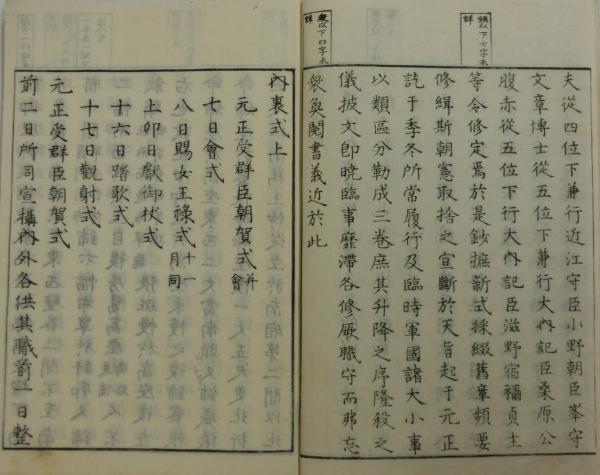 頻以下七字未詳
夫從四位下兼行近江守臣小野朝臣岑守
文章博士從五位下兼行大內記臣桑原公
腹赤從五位下行大內記臣滋野宿禰貞主
等令修定焉於是鈔摭新式採綴舊章頻要
修緝斯朝憲取捨之宜斷於天旨起于元正
訖于季冬所常履行及臨時軍國諸大小事
以類區分勒成三卷庶其升降之序隆殺之
儀披文卽曉臨事靡滯各修厥職守而弗忘
衆臾閱書義近於此
衆以下四字未詳
內裏式上
元正受群臣朝賀式并會
七日會式
八日賜女王祿式十一月同
上卯日獻御杖式
十六日踏歌式
十七日觀射式
元正受群臣朝賀式
前二日所司宣攝內外各供其職前一日整